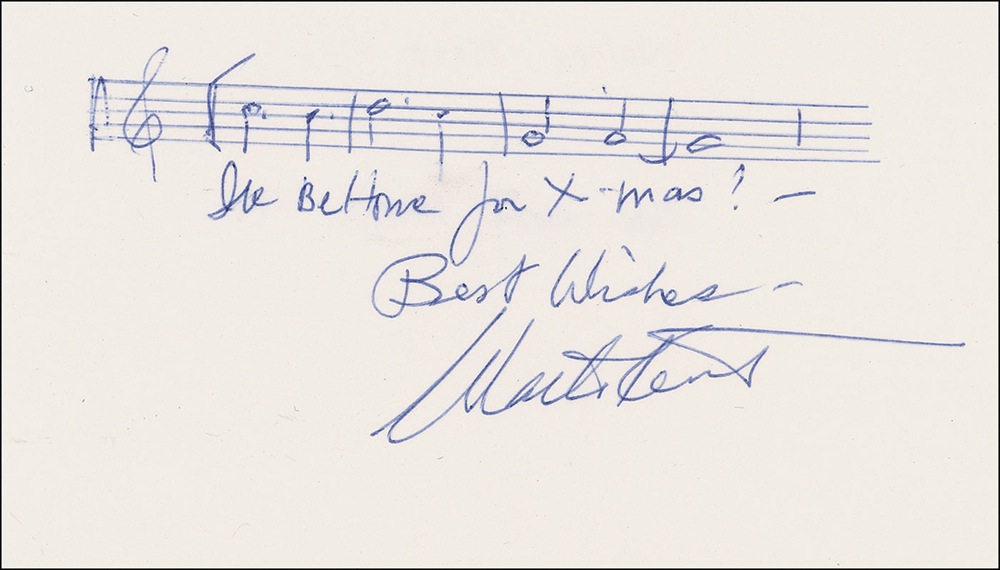 I'll Be Home for X-mas! —
Best Wishes —
Walter Kent